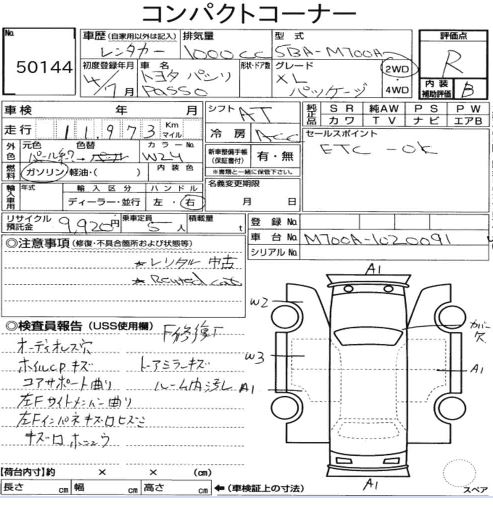 コンパクトコーナー
No. 50144
車歴 (自家用以外は記入) レンタカー
排気量 1000cc
型式 5BA-M700A
評価点 R
初度登録年月 4/7月
車名 トヨタ パッソ PASSO
形状・ドア数
グレード XL パッケージ
2WD 4WD
内装補助評価 B
車検 年 月
シフト AT
純正品 SR 純AW PS PW
カワ TV ナビ エアB
走行 11,973 Km マイル
冷房 ACC
セールスポイント
ETC-OK
外色 元色 パール 色替 カラーNo. W24
燃料 ガソリン 軽油・( )
新車整備手帳(保証書付) 有・無
※書類と一緒に保管して下さい。
輸入車用 年式 輸入区分 ディーラー・並行 ハンドル 左・右
名義変更期限 月 日
リサイクル預託金 9,920円
乗車定員 5人
積載量 t
登録No.
車台No. M700A-1020091
シリアルNo.
◎注意事項 (修復・不具合箇所および状態等)
★レンタル中古
★Rented car
◎検査員報告 (USS使用欄)
F修復
オーディオレス穴
ホイルCPキズ
トーアミラーキズ
コアサポート曲り
ルーム内汚レ
左Fサイドメンバー曲り
左Fインパネキズ
キズ
A1
W2
カバー欠
W3
A1
A1
A1
【荷台内寸】約 × × (cm)
長さ cm 幅 cm 高さ cm
(車検証上の寸法)
スペア